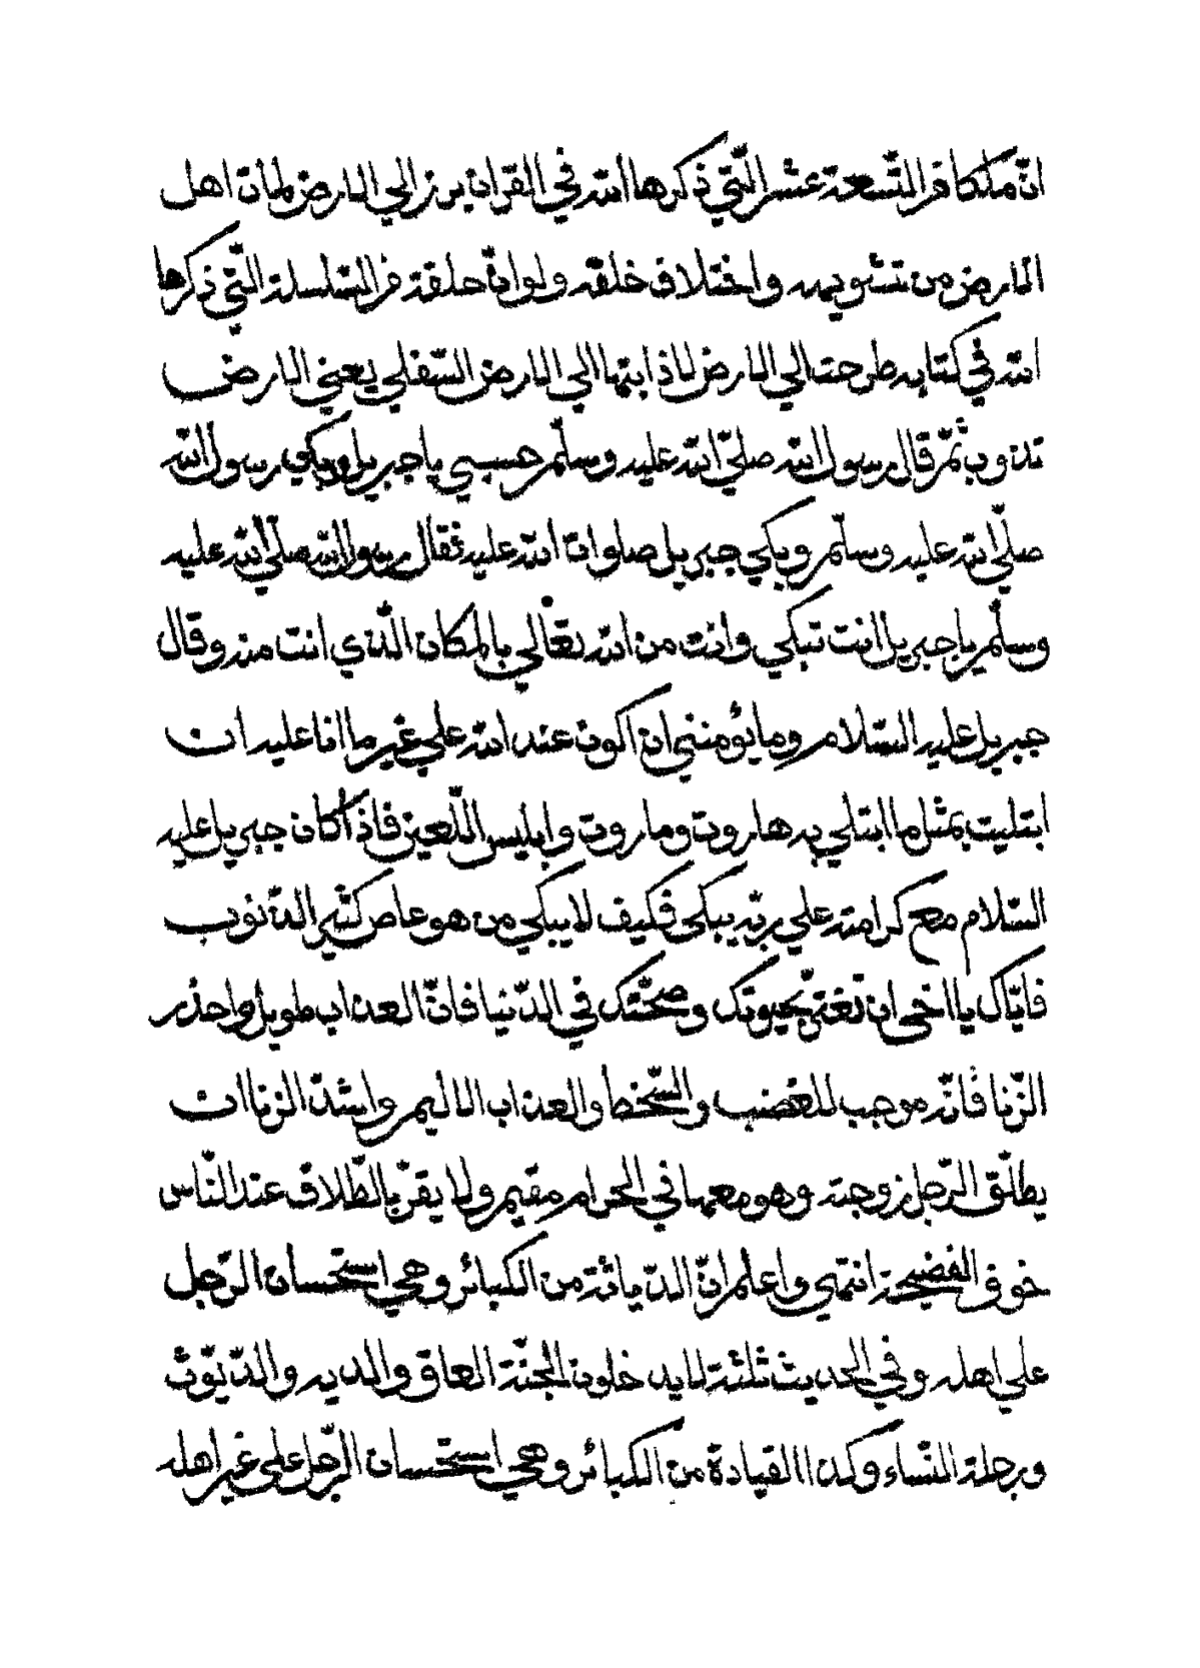 انّ ملكا من التّسعة عشر الّتي ذكرها الله في القران برز الي الارض لمات اهل
الارض من تشويهه واختلاف خلقه ولو انّ حلقة من السّلسلة الّتي ذكرها
الله في كتابه طرحت الي الارض لاذابتها الي الارض السّفلي يعني الارض
تذوب ثمّ قال رسول الله صلّي الله عليه وسلّم حسبي يا جبريل وبكي رسول الله
صلّي الله عليه وسلّم وبكي جبريل صلوات الله عليه فقال رسول الله صلّي الله عليه
وسلّم يا جبريل انت تبكي وانت من الله تعالي بالمكان الّذي انت منه وقال
جبريل عليه السّلام وما يؤمنني ان اكون عند الله علي غير ما انا عليه ان
ابتليت بمثل ما ابتلي به هاروت وماروت وابليس اللّعين فاذا كان جبريل عليه
السّلام مع كرامته علي ربّه يبكي فكيف لا يبكي من هو عاص كثير الذّنوب
فايّاك يا اخي ان تغترّ بحيوتك وصحّتك في الدّنيا فانّ العذاب طويل واحذر
الزّنا فانّه موجب للغضب والسّخط والعذاب الاليم واشدّ الزنا ان
يطلّق الرّجل زوجته وهو معها في الحرام مقيم ولا يقرّ بالطّلاق عند النّاس
خوف الفضيحة انتهي واعلم انّ الدّياثة من الكبائر وهي استحسان الرّجل
علي اهله وفي الحديث ثلثة لا يدخلون الجنّة العاق والديه والدّيّوث
ورجلة النّساء وكذا القيادة من الكبائر وهي استحسان الرّجل علي غير اهله